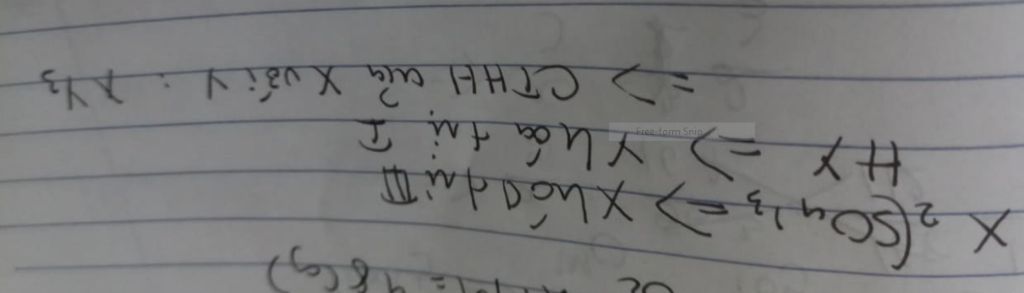 = 48(g)
X2(SO4)3 => X hóa trị III
HY => Y hóa trị I
=> CTHH của X với Y : XY3
Free-form Snip